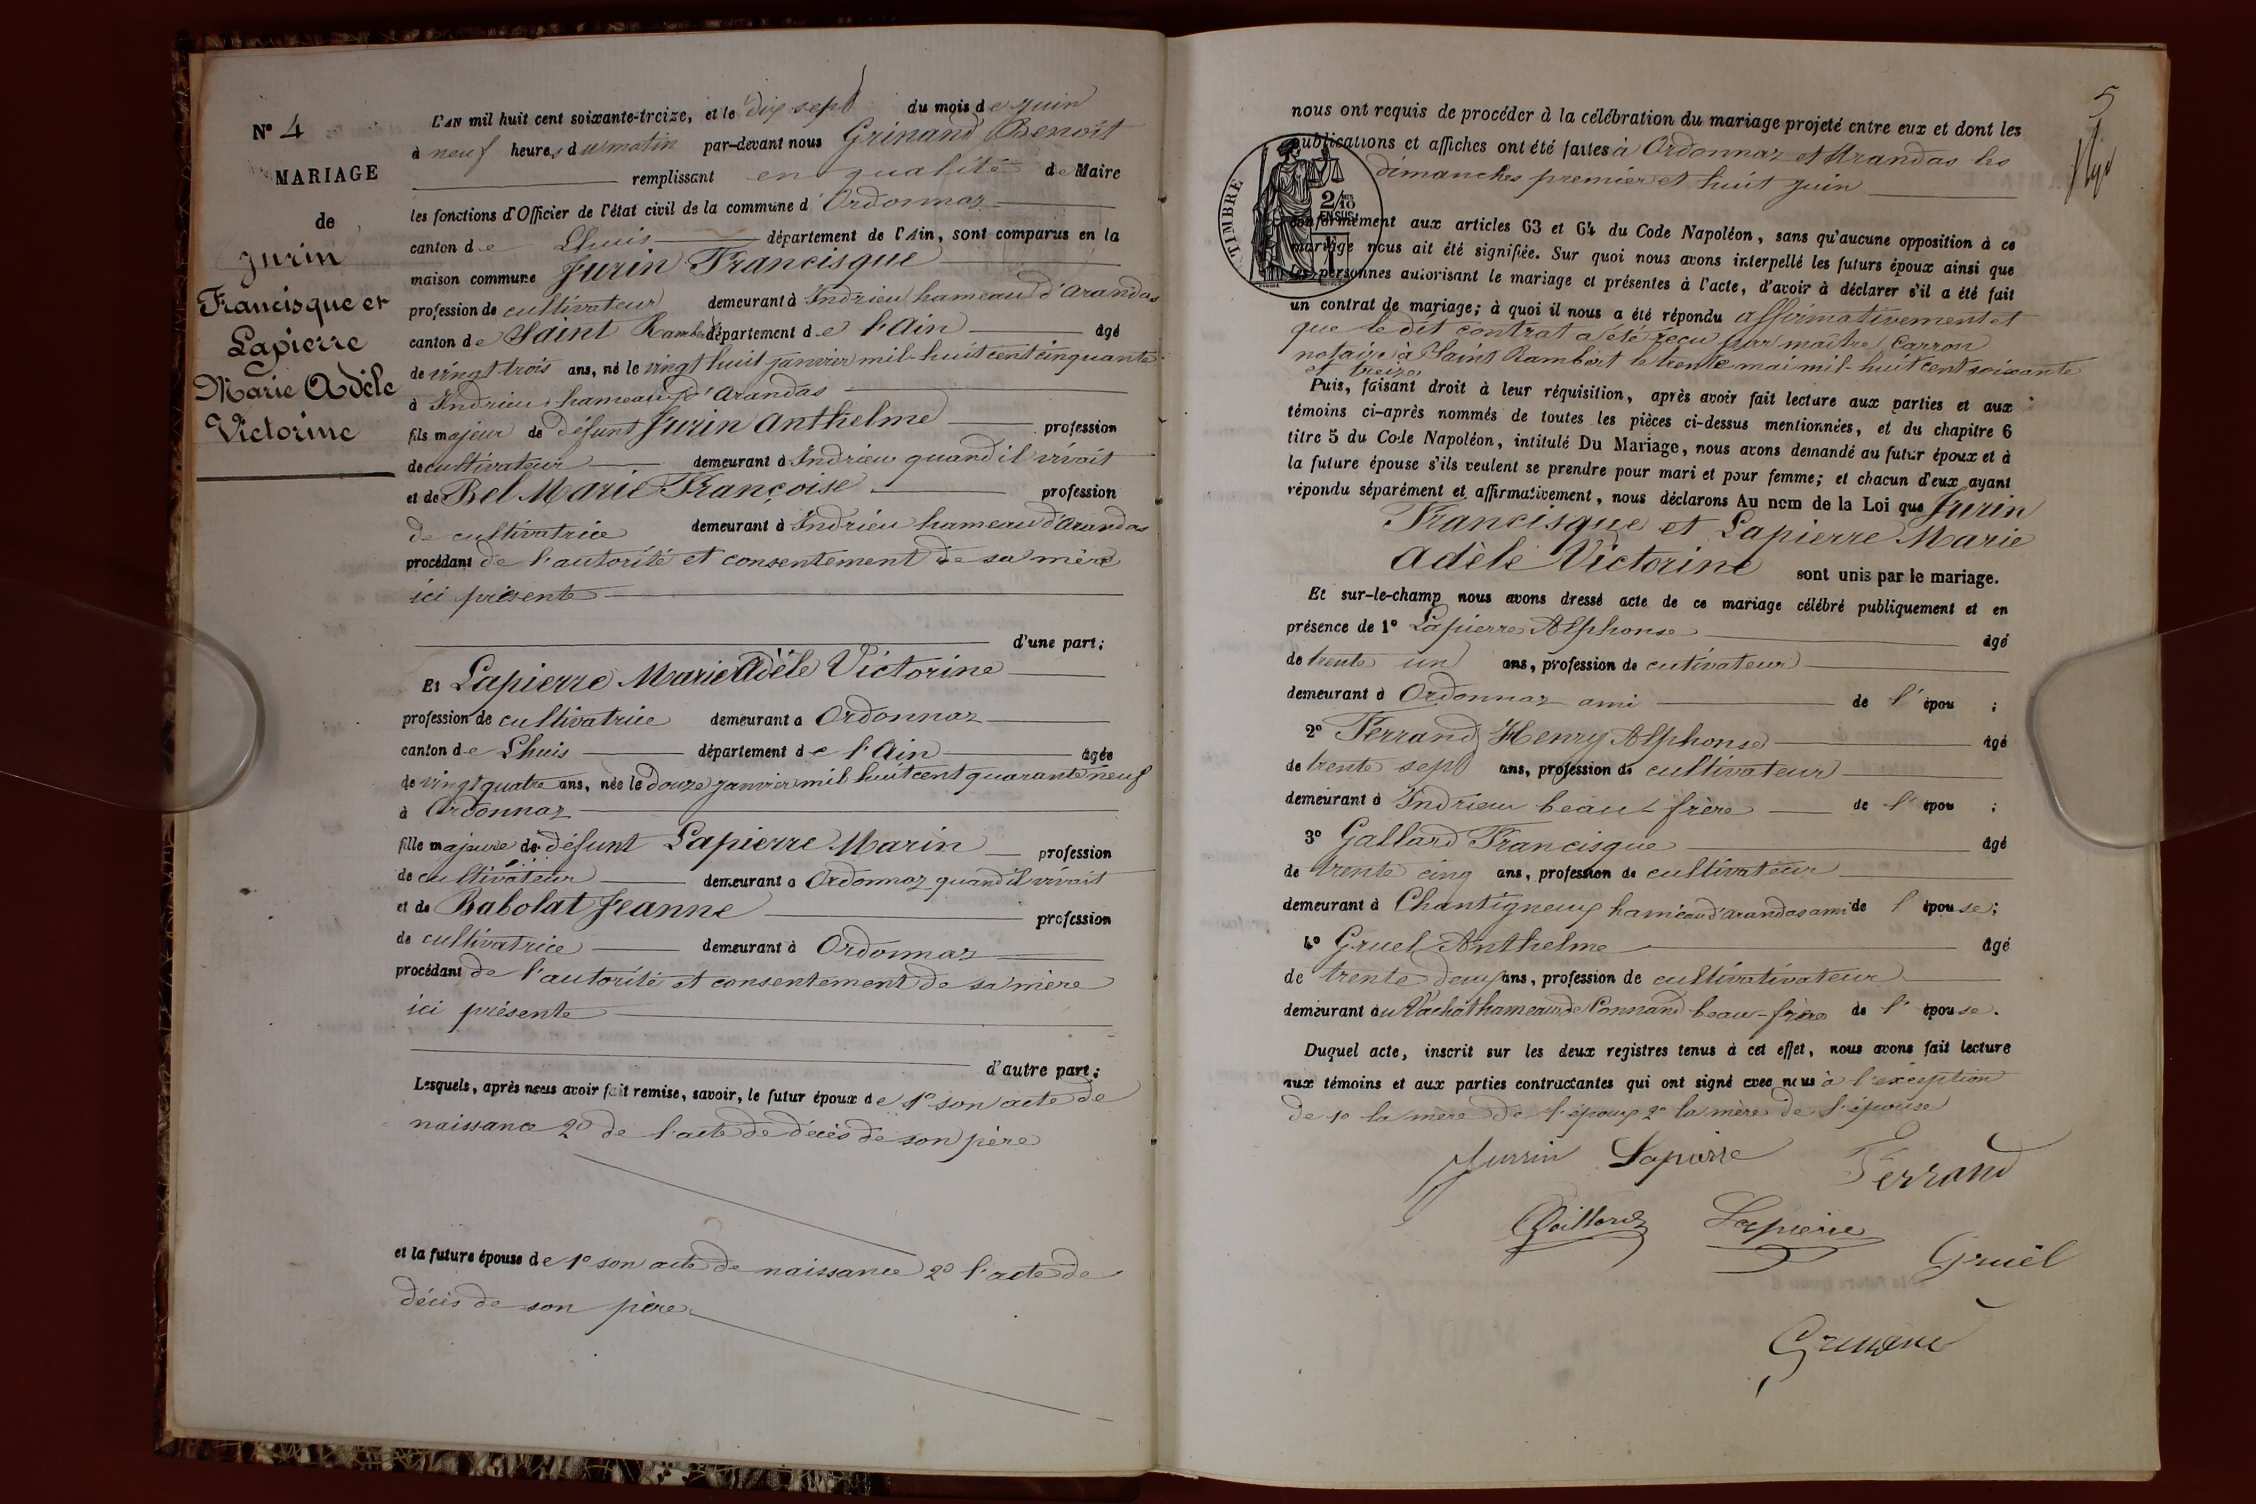 N° 4
MARIAGE
de
Jurin
Francisque et
Lapierre
Marie Adèle
Victorine
L'AN mil huit cent soixante-treize, et le dix sept du mois de juin
à neuf heures du matin par-devant nous Grinand Benoît
remplissant en qualité de Maire
les fonctions d'Officier de l'état civil de la commune d'Ordonnaz
canton de Lhuis département de l'Ain, sont comparus en la
maison commune Jurin Francisque
profession de cultivateur demeurant à Indrieu hameau d'Arandas
canton de Saint Rambert département de l'Ain âgé
de vingt trois ans, né le vingt huit janvier mil huit cent cinquante
à Indrieu hameau d'Arandas
fils majeur de défunt Jurin Anthelme profession
de cultivateur demeurant à Indrieu quand il vivoit
et de Bel Marie Françoise profession
de cultivatrice demeurant à Indrieu hameau d'Arandas
procédant de l'autorité et consentement de sa mère
ici présente
d'une part;
Et Lapierre Marie Adèle Victorine
profession de cultivatrice demeurant à Ordonnaz
canton de Lhuis département de l'Ain âgée
de vingt quatre ans, née le douze janvier mil huit cent quarante neuf
à Ordonnaz
fille majeure de défunt Lapierre Marin profession
de cultivateur demeurant à Ordonnaz quand il vivait
et de Babolat Jeanne profession
de cultivatrice demeurant à Ordonnaz
procédant de l'autorité et consentement de sa mère
ici présente
d'autre part;
Lesquels, après nous avoir fait remise, savoir, le futur époux de 1° son acte de
naissance 2° de l'acte de décès de son père
et la future épouse de 1° son acte de naissance 2° l'acte de
décès de son père
5
nous ont requis de procéder à la célébration du mariage projeté entre eux et dont les
publications et affiches ont été faites à Ordonnaz et Arandas les
dimanches premier et huit juin
TIMBRE
2/10
EN SUS
conformément aux articles 63 et 64 du Code Napoléon, sans qu'aucune opposition à ce
mariage nous ait été signifiée. Sur quoi nous avons interpellé les futurs époux ainsi que
les personnes autorisant le mariage et présentes à l'acte, d'avoir à déclarer s'il a été fait
un contrat de mariage; à quoi il nous a été répondu affirmativement et
que le dit contrat a été reçu par maître Carron
notaire à Saint Rambert le trente mai mil-huit cent soixante
et treize
Puis, faisant droit à leur réquisition, après avoir fait lecture aux parties et aux
témoins ci-après nommés de toutes les pièces ci-dessus mentionnées, et du chapitre 6
titre 5 du Code Napoléon, intitulé Du Mariage, nous avons demandé au futur époux et à
la future épouse s'ils veulent se prendre pour mari et pour femme; et chacun d'eux ayant
répondu séparément et affirmativement, nous déclarons Au nom de la Loi que Jurin
Francisque et Lapierre Marie
Adèle Victorine sont unis par le mariage.
Et sur-le-champ nous avons dressé acte de ce mariage célébré publiquement et en
présence de 1° Lapierre Alphonse âgé
de trente un ans, profession de cutivateur
demeurant à Ordonnaz ami de l'épou ;
2° Ferrand Henry Alphonse âgé
de trente sept ans, profession de cultivateur
demeurant à Indrieu beau-frère de l'épou ;
3° Gallard Francisque âgé
de trente cinq ans, profession de cultivateur
demeurant à Chantigneux hameau d'Arandas ami de l'épouse;
4° Gruel Anthelme âgé
de trente deux ans, profession de cultivativateur
demeurant au Vachat hameau de Connand beau-frère de l'épouse.
Duquel acte, inscrit sur les deux registres tenus à cet effet, nous avons fait lecture
aux témoins et aux parties contractantes qui ont signé avec nous à l'exception
de 1° la mère de l'époux 2° la mère de l'épouse
Jurrin Lapierre Ferrand
Gaillard Lapierre Gruel
Grinand